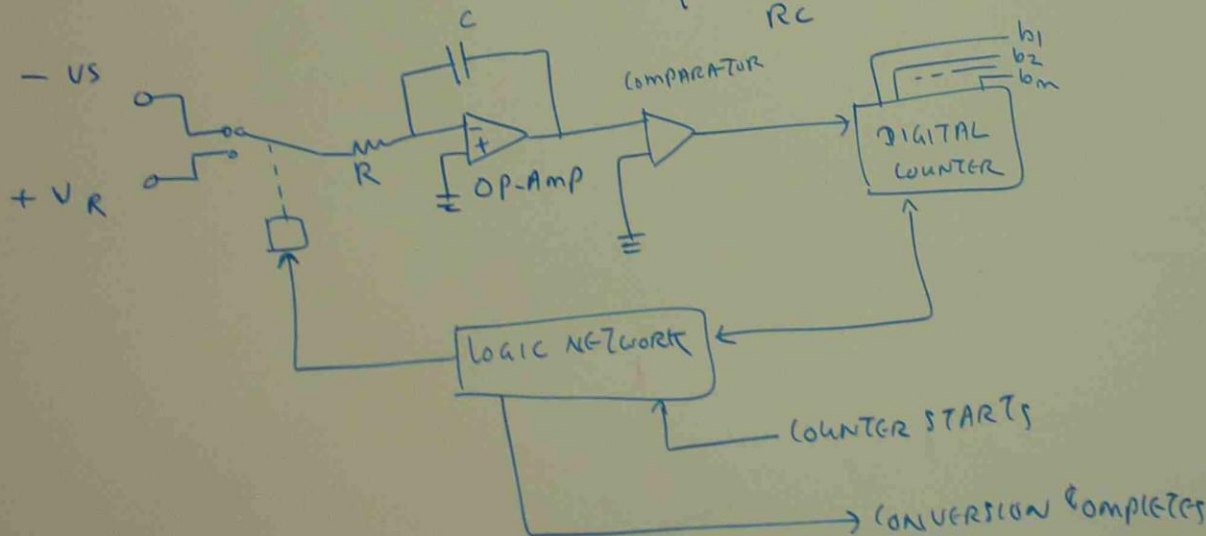 RC
C
- VS
+ VR
R
- +
OP-Amp
COMPARATOR
b1
b2
---
bm
DIGITAL
COUNTER
LOGIC NETWORK
COUNTER STARTS
CONVERSION COMPLETES